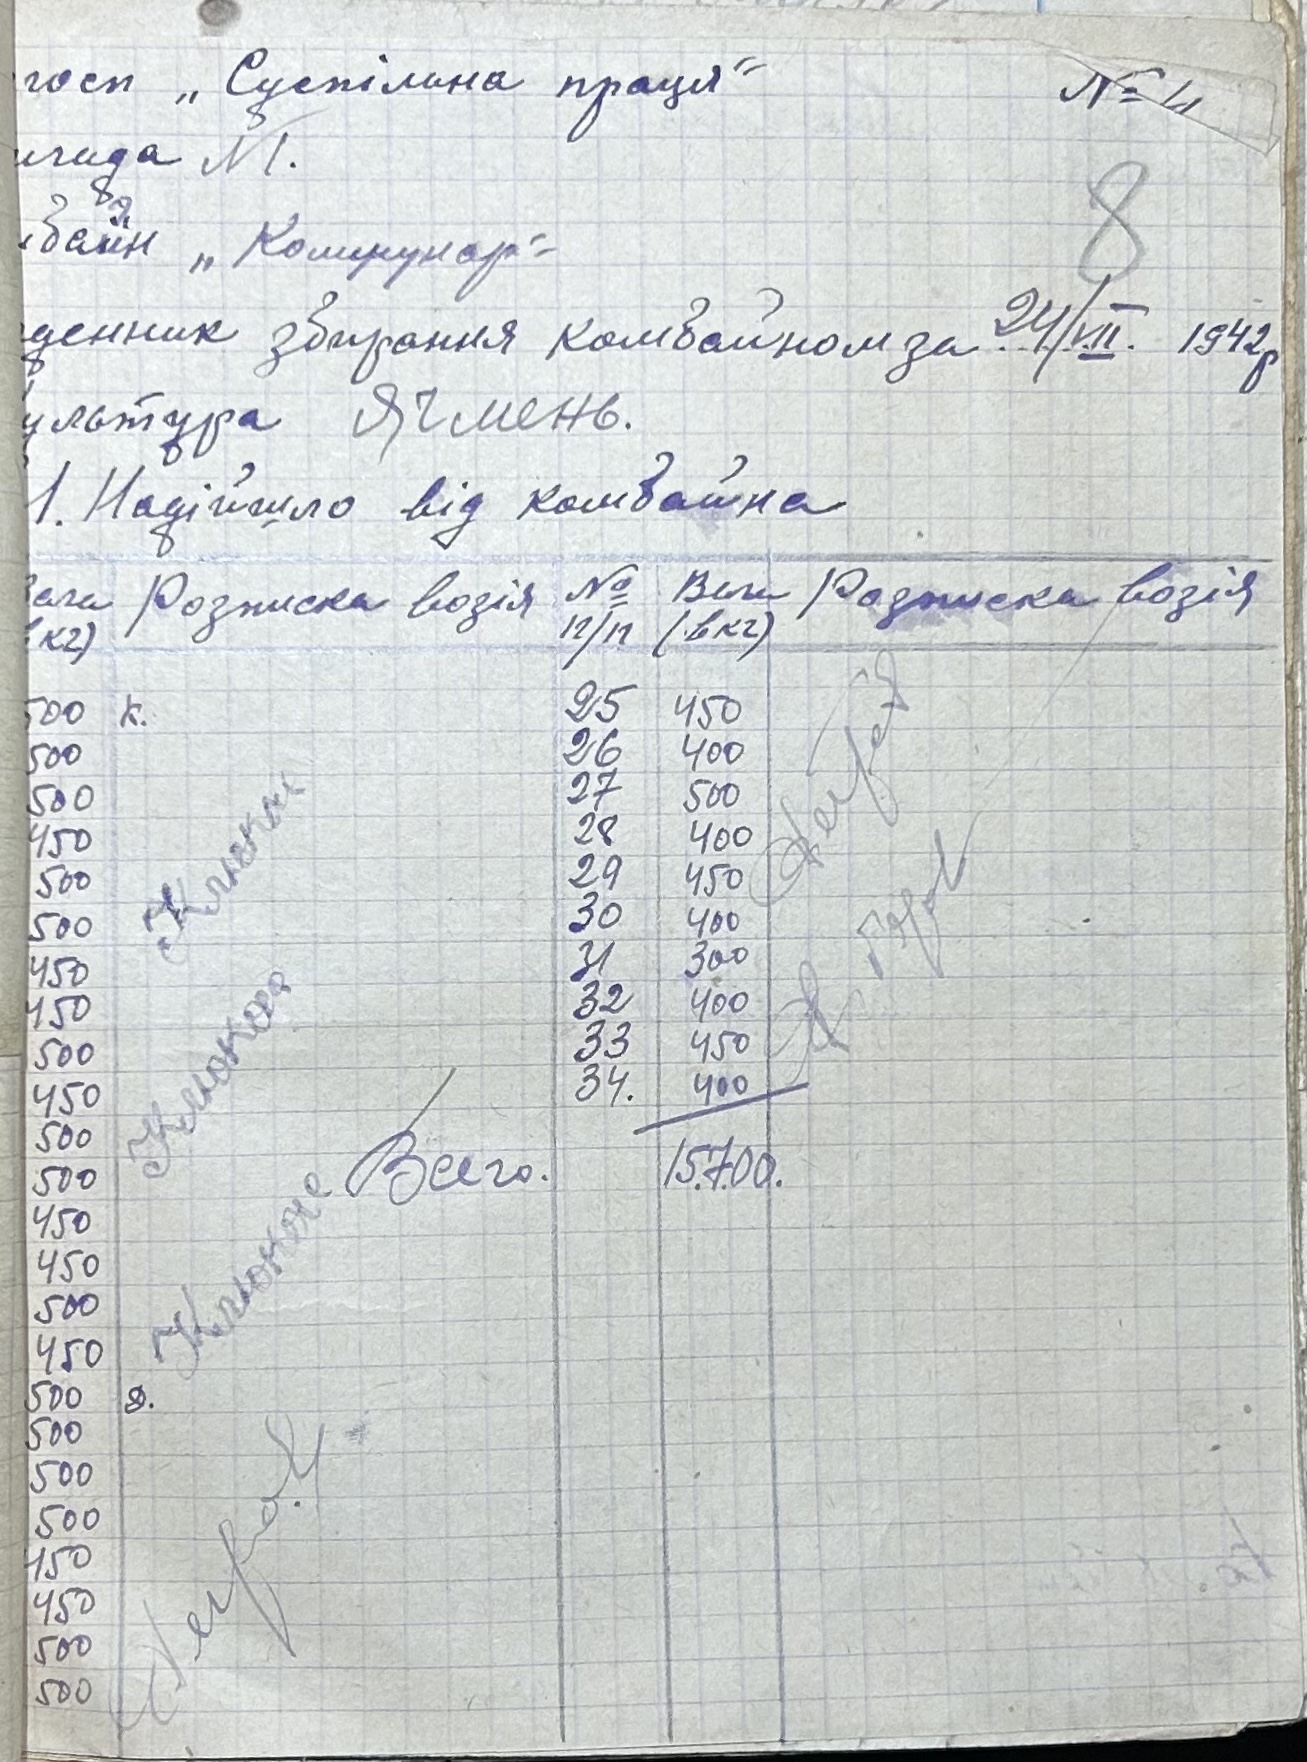 госп „Суспільна праця" № 4
игада №1.
8
мбайн „Комунар"
денник збирання комбайном за 24/VII. 1942р
ультура Ячмень.
1. Надійшло від комбайна
Вага (в кг) Розписка возія № п/п Вага (в кг) Розписка возія
500 к. 25 450
500 26 400
500 27 500
450 28 400
500 29 450
500 30 400
450 31 300
450 32 400
500 33 450
450 34. 400
500
500 Всего. 15.700.
450
450
500
450
500 Я.
500
500
500
450
450
500
500